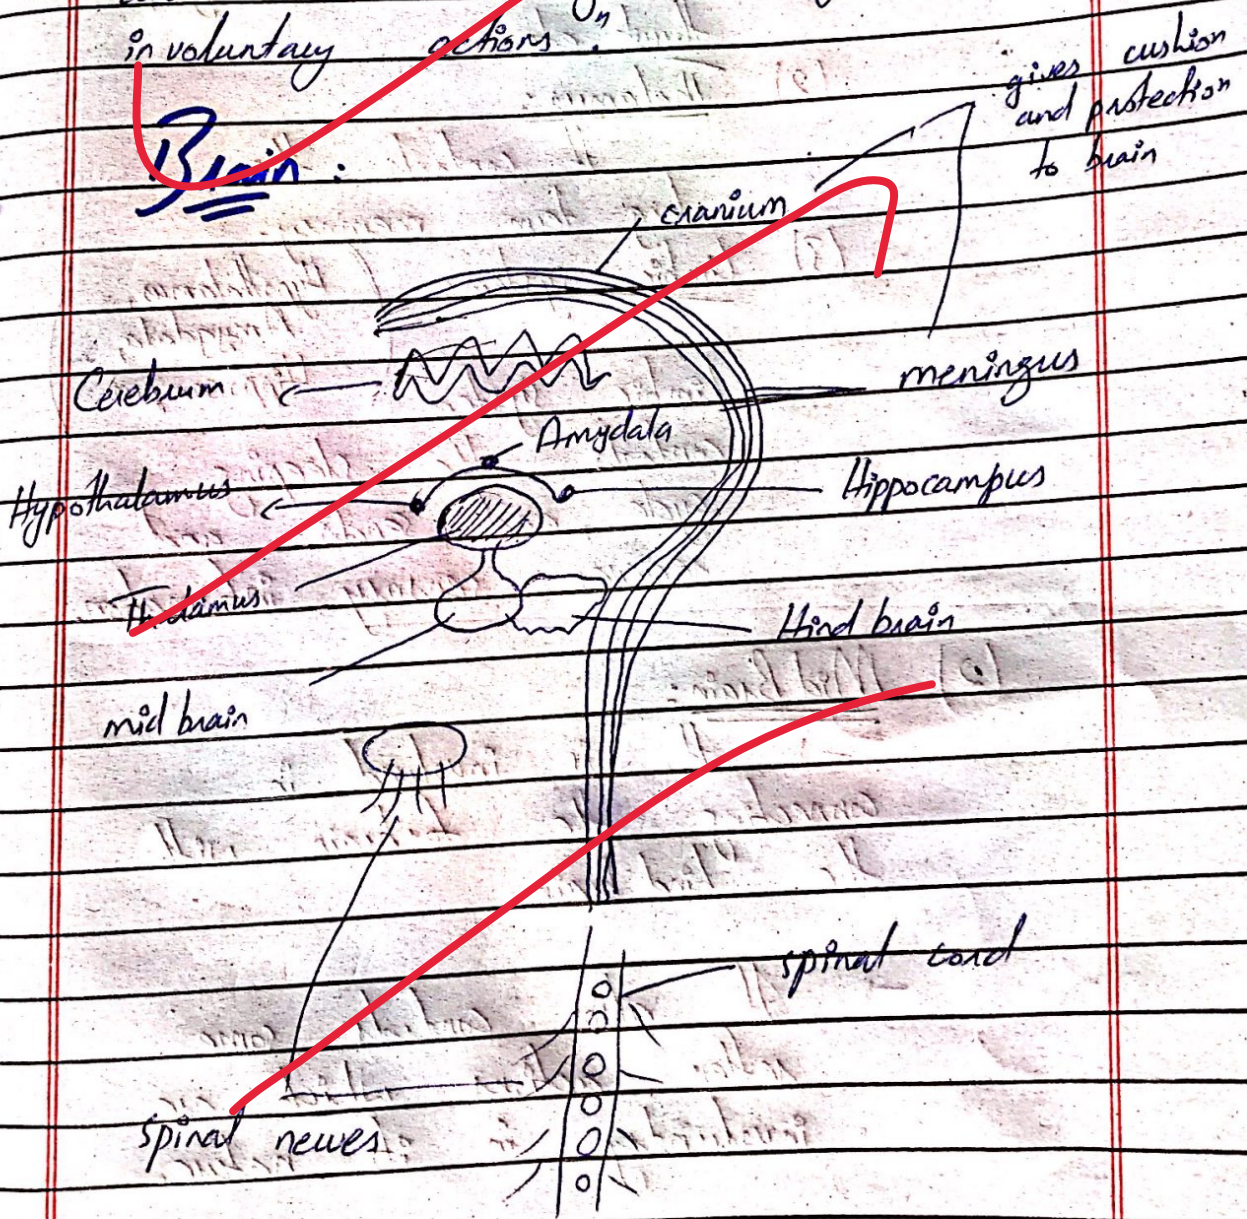 involuntary actions.
Brain:
gives cushion
and protection
to brain
cranium
Cerebrum
meningus
Amydala
Hypothalamus
Hippocampus
Thalamus
Hind brain
mid brain
spinal cord
spinal nerves